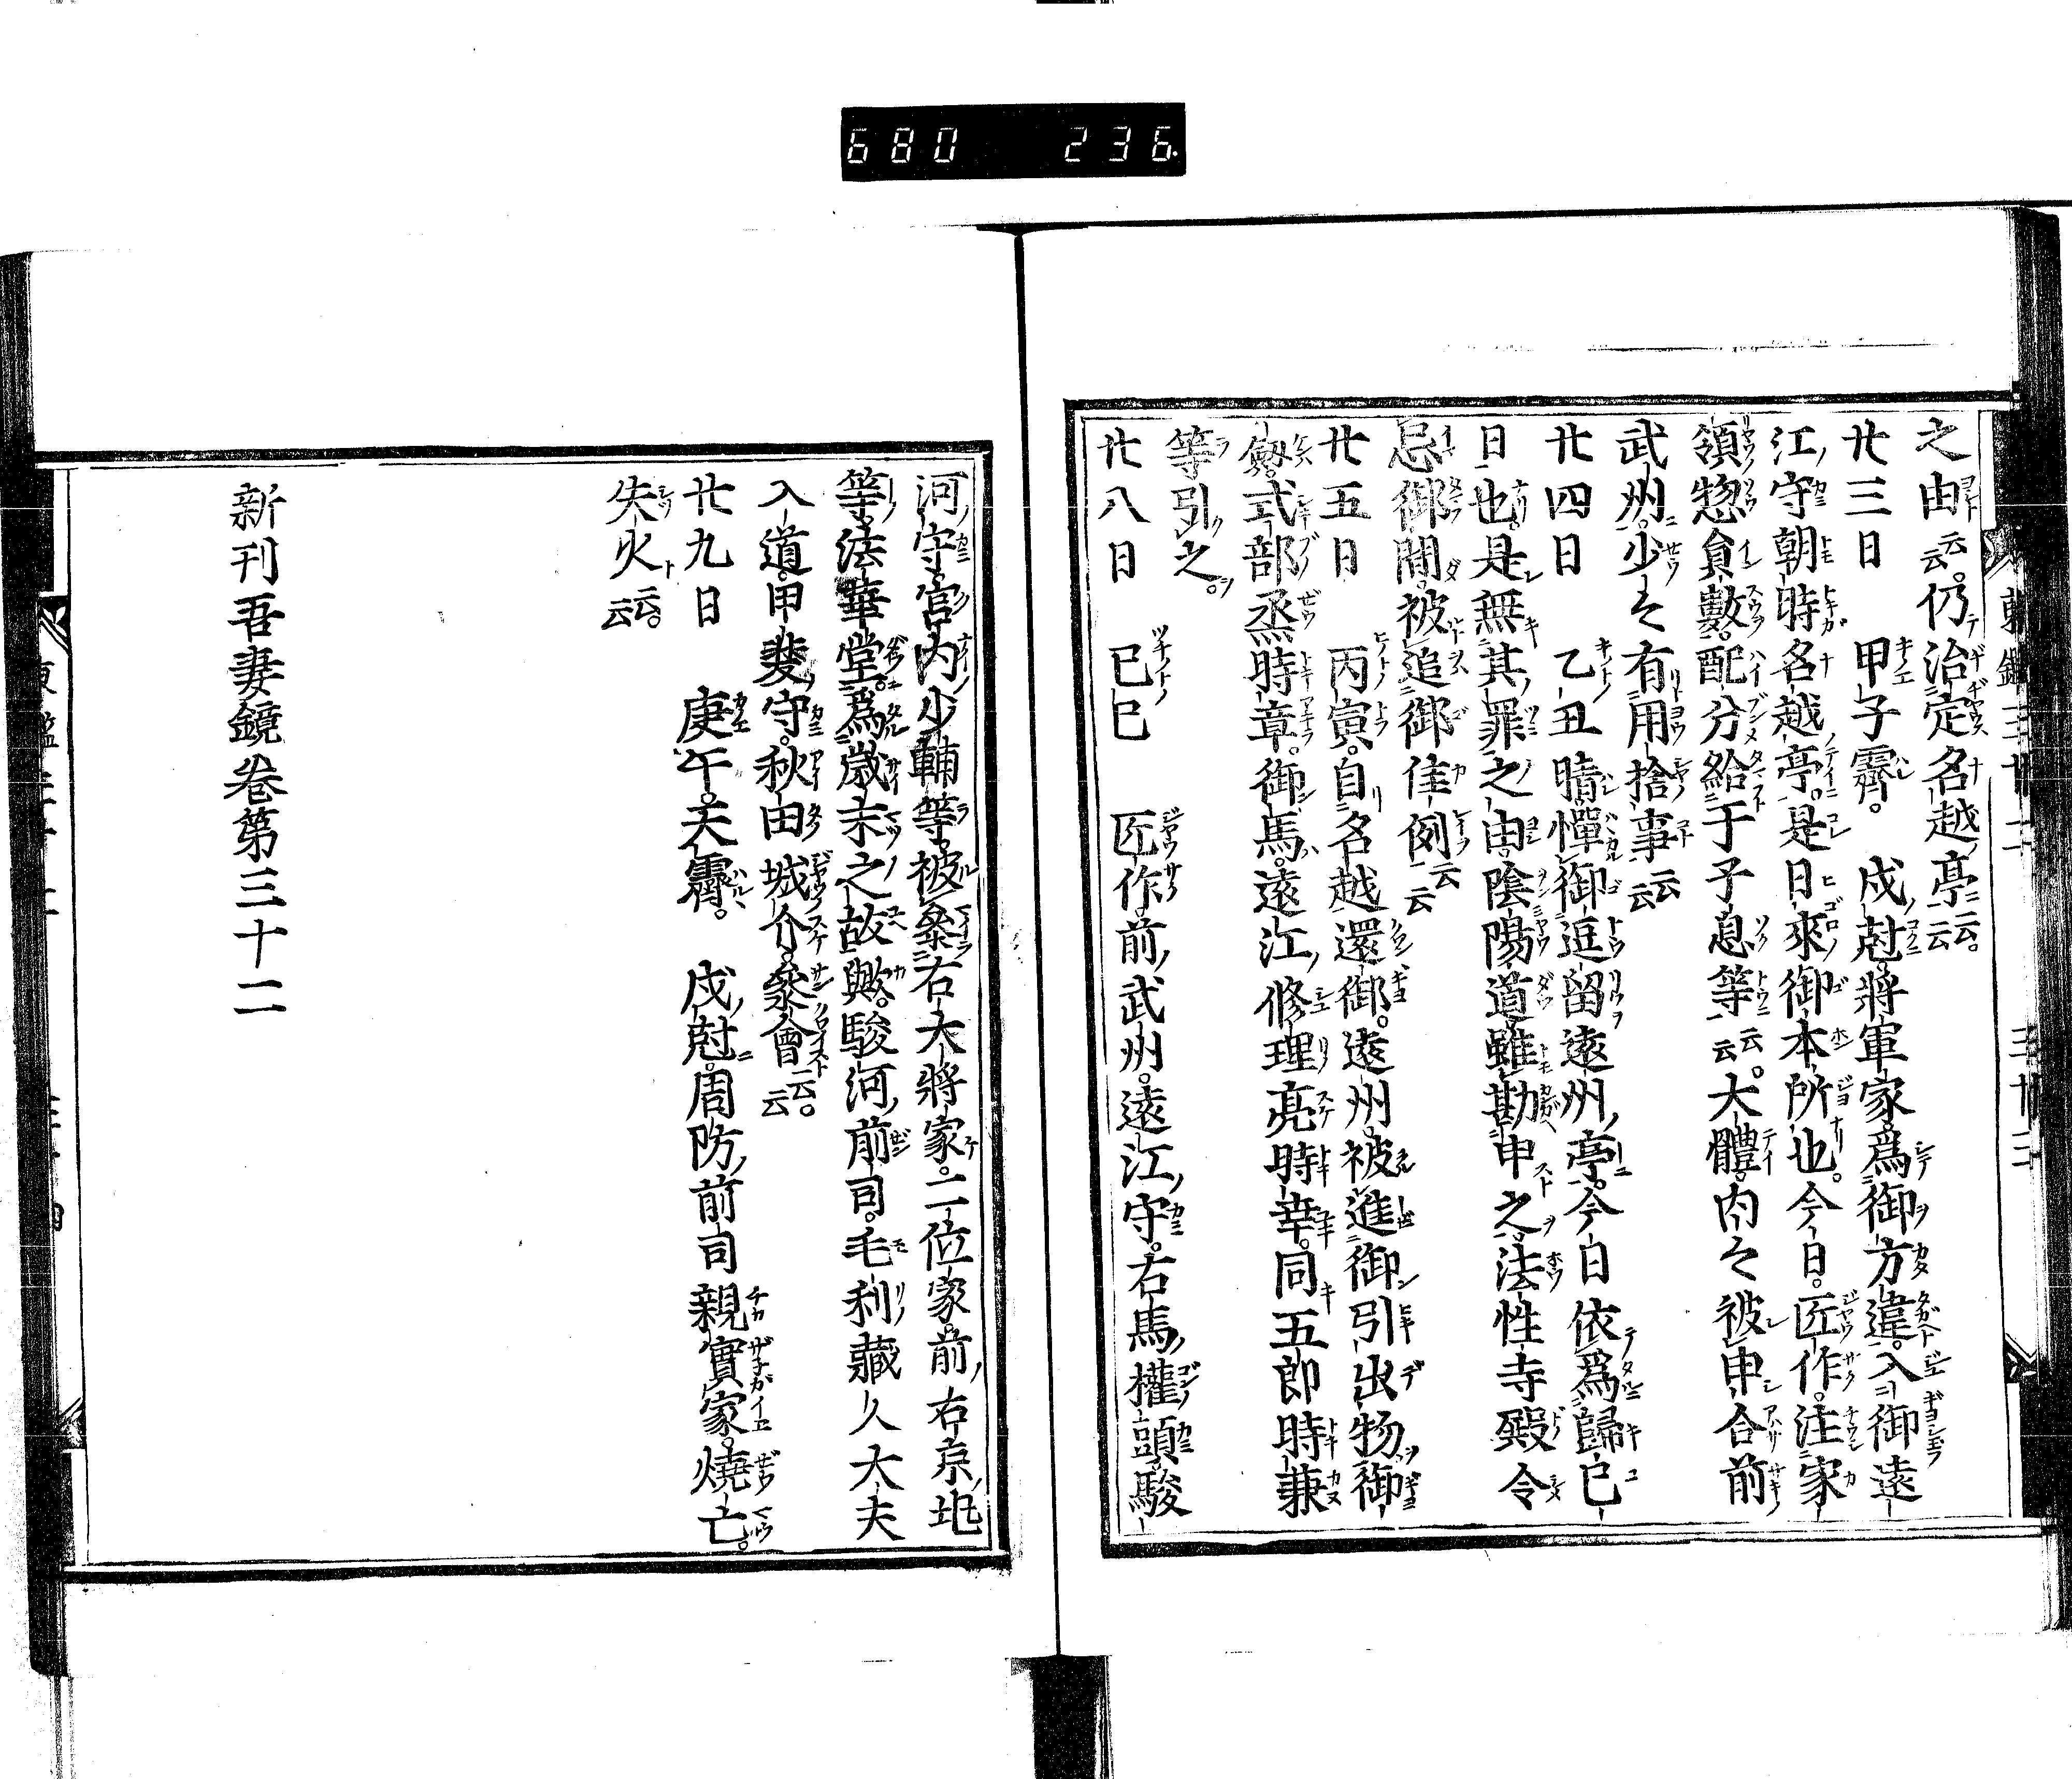 680 236
之由云云。仍治定名越亭云云。
廿三日 甲子霽。 戌尅。將軍家。爲御方違。入御遠
江守朝時名越亭。是日來御本所也。今日。匠作。注家
領惣員數。配分給于子息等云云。大體。内々被申合前
武州。少々有用捨事云云
廿四日 乙丑晴。憚御逗留。遠州亭。今日依爲歸已
日也。是無其罪之由。陰陽道雖勘申之。法性寺殿令
忌御間。被追御佳例云云
廿五日 丙寅。自名越還御。遠州。被進御引出物。御
劔。式部烝時章。御馬。遠江修理亮時幸。同五郎時兼
等引之。
廿八日 已巳 匠作。前武州。遠江守。右馬權頭。駿
河守。宮内少輔等。被參右大將家。二位家。前右京兆
等。法華堂。爲歳末之故歟。駿河前司。毛利藏人大夫
入道。甲斐守。秋田城介。參會云云。
廿九日 庚午。天霽。 戌尅。周防前司親實家。燒亡。
失火云云。
新刊吾妻鏡卷第三十二